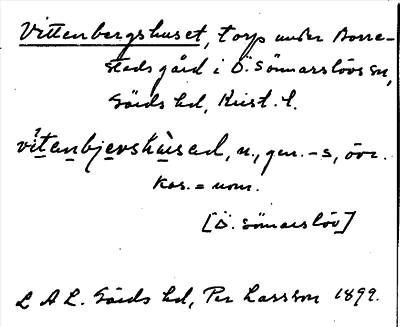 Vittenbergshuset, torp under Borre-
stads gård i Ö. Sönnarslövs sn,
Gärds hd, Krist. l.
vìtanbjερshùsəd, n., gen. -s, övr.
kas. = nom.
[Ö. Sönnarslöv]
L A L. Gärds hd, Per Larsson 1899.